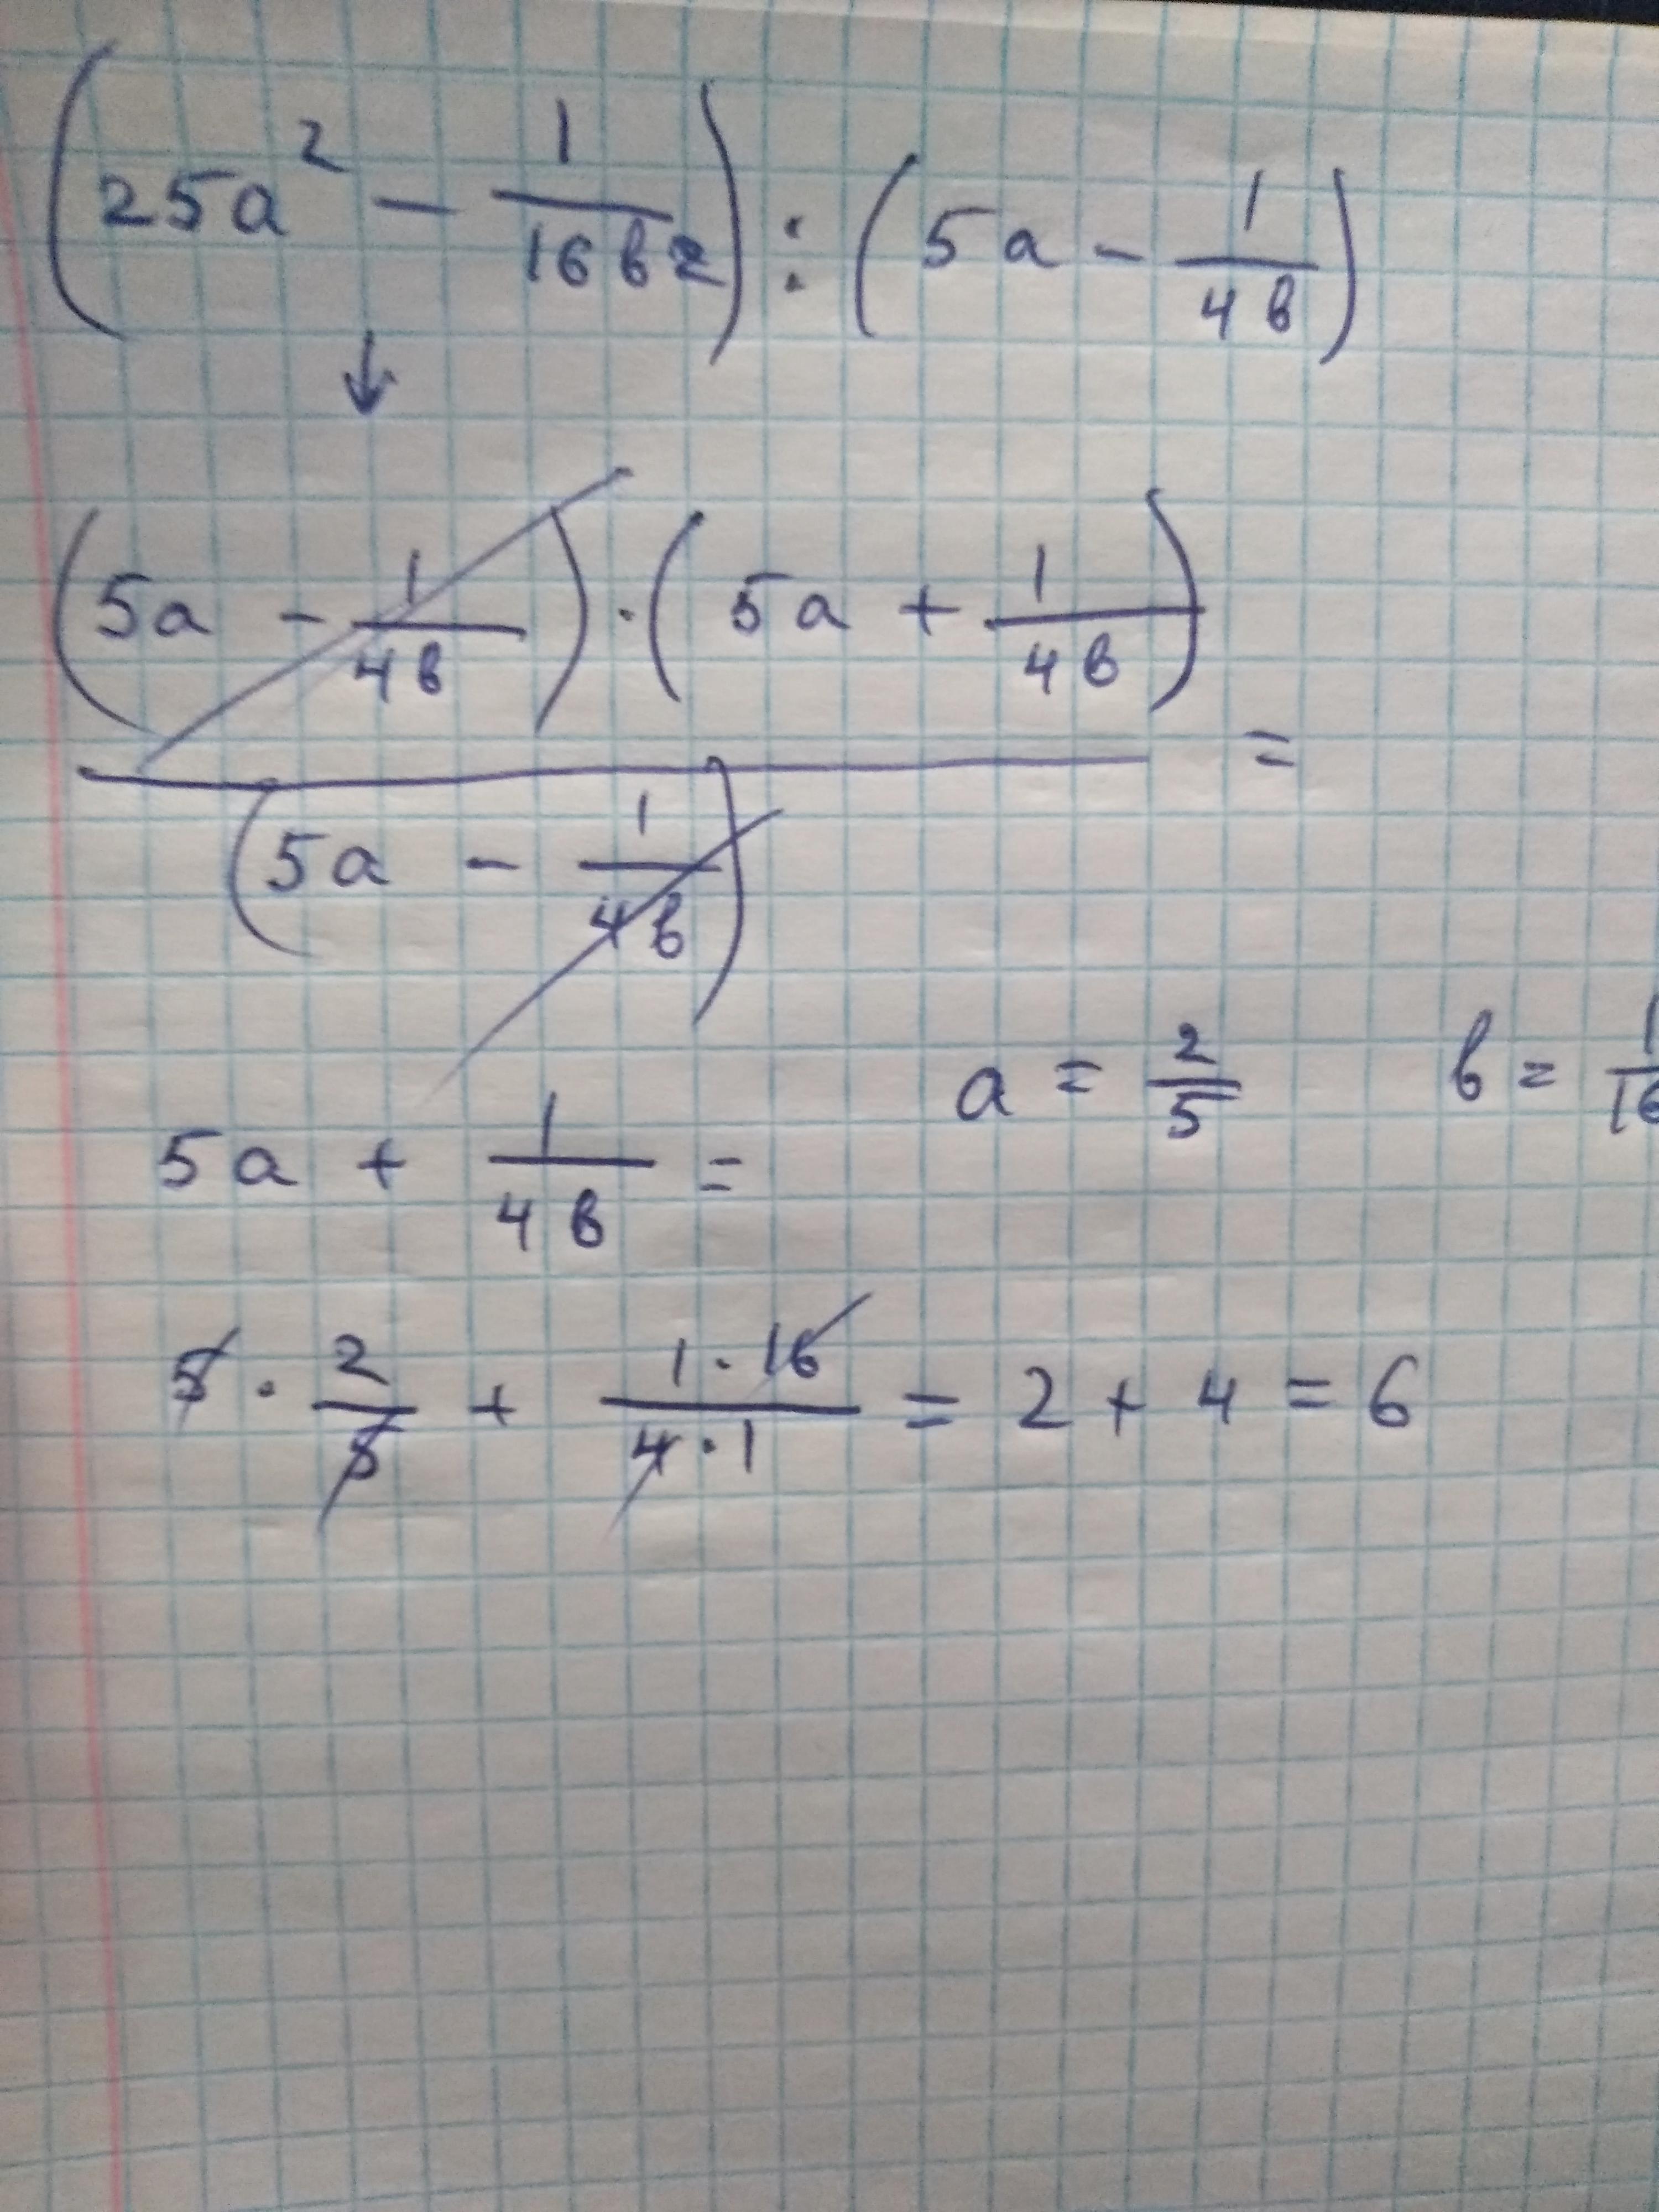 (25a² − 1/16b2) : (5a − 1/4b)
↓
(5a − 1/4b) · (5a + 1/4b)
=
(5a − 1/4b)
a = 2/5 b = 1/16
5a + 1/4b =
5 · 2/5 + 1·16/4·1 = 2 + 4 = 6